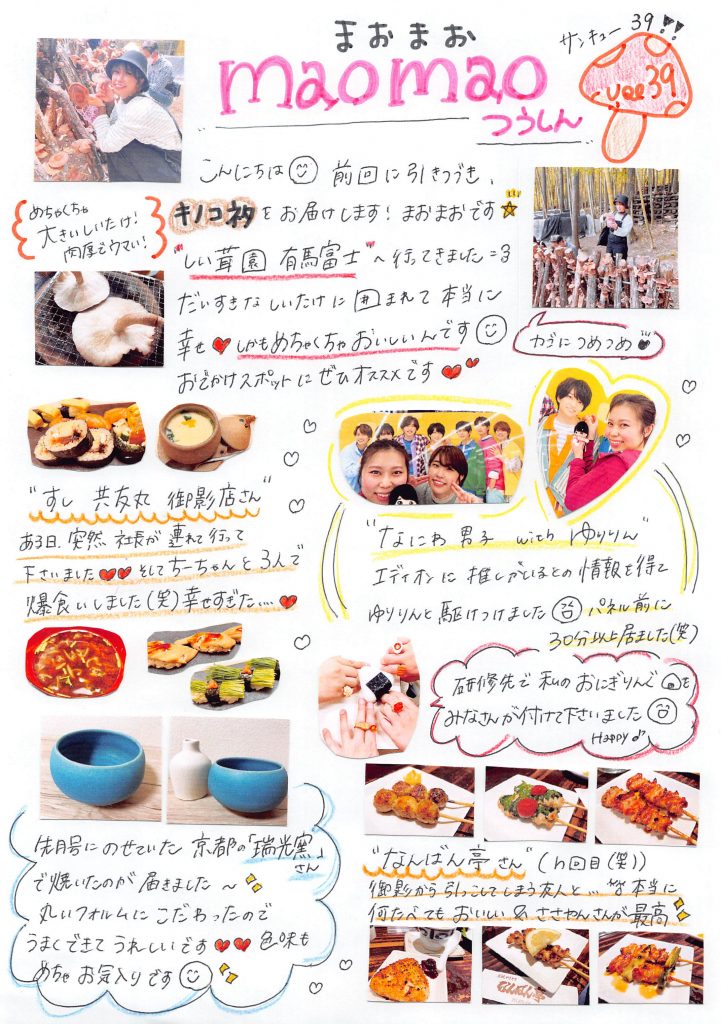 まおまお
maomao
つうしん
サンキュー 39!!
vol 39
こんにちは 前回に引きつづき、
キノコネタをお届けします！まおまおです
"しい茸園 有馬富士"へ行ってきました
だいすきなしいたけに囲まれて本当に
幸せ しかもめちゃくちゃおいしいんです
おでかけスポットにぜひオススメです
めちゃくちゃ
大きいしいたけ！
肉厚でウマい！
カゴにつめつめ
"すし 共友丸 御影店さん"
ある日、突然 社長が連れて行って
下さいました そしてちーちゃんと3人で
爆食いしました(笑)幸せすぎた…
"なにわ男子 with ゆりりん"
エディオンに推しがいるとの情報を得て
ゆりりんと駆けつけました パネル前に
30分以上居ました(笑)
研修先で私のおにぎりんぐを
みなさんが付けて下さいました
Happy♪
先月号にのせていた 京都の「瑞光窯」さん
で焼いたのが届きました～
丸いフォルムにこだわったので
うまくできてうれしいです 色味も
めちゃお気入りです
"なんばん亭さん"(n回目(笑))
御影から引っこしてしまう友人と… 本当に
何たべてもおいしい & ささやんさんが最高
なんばん亭